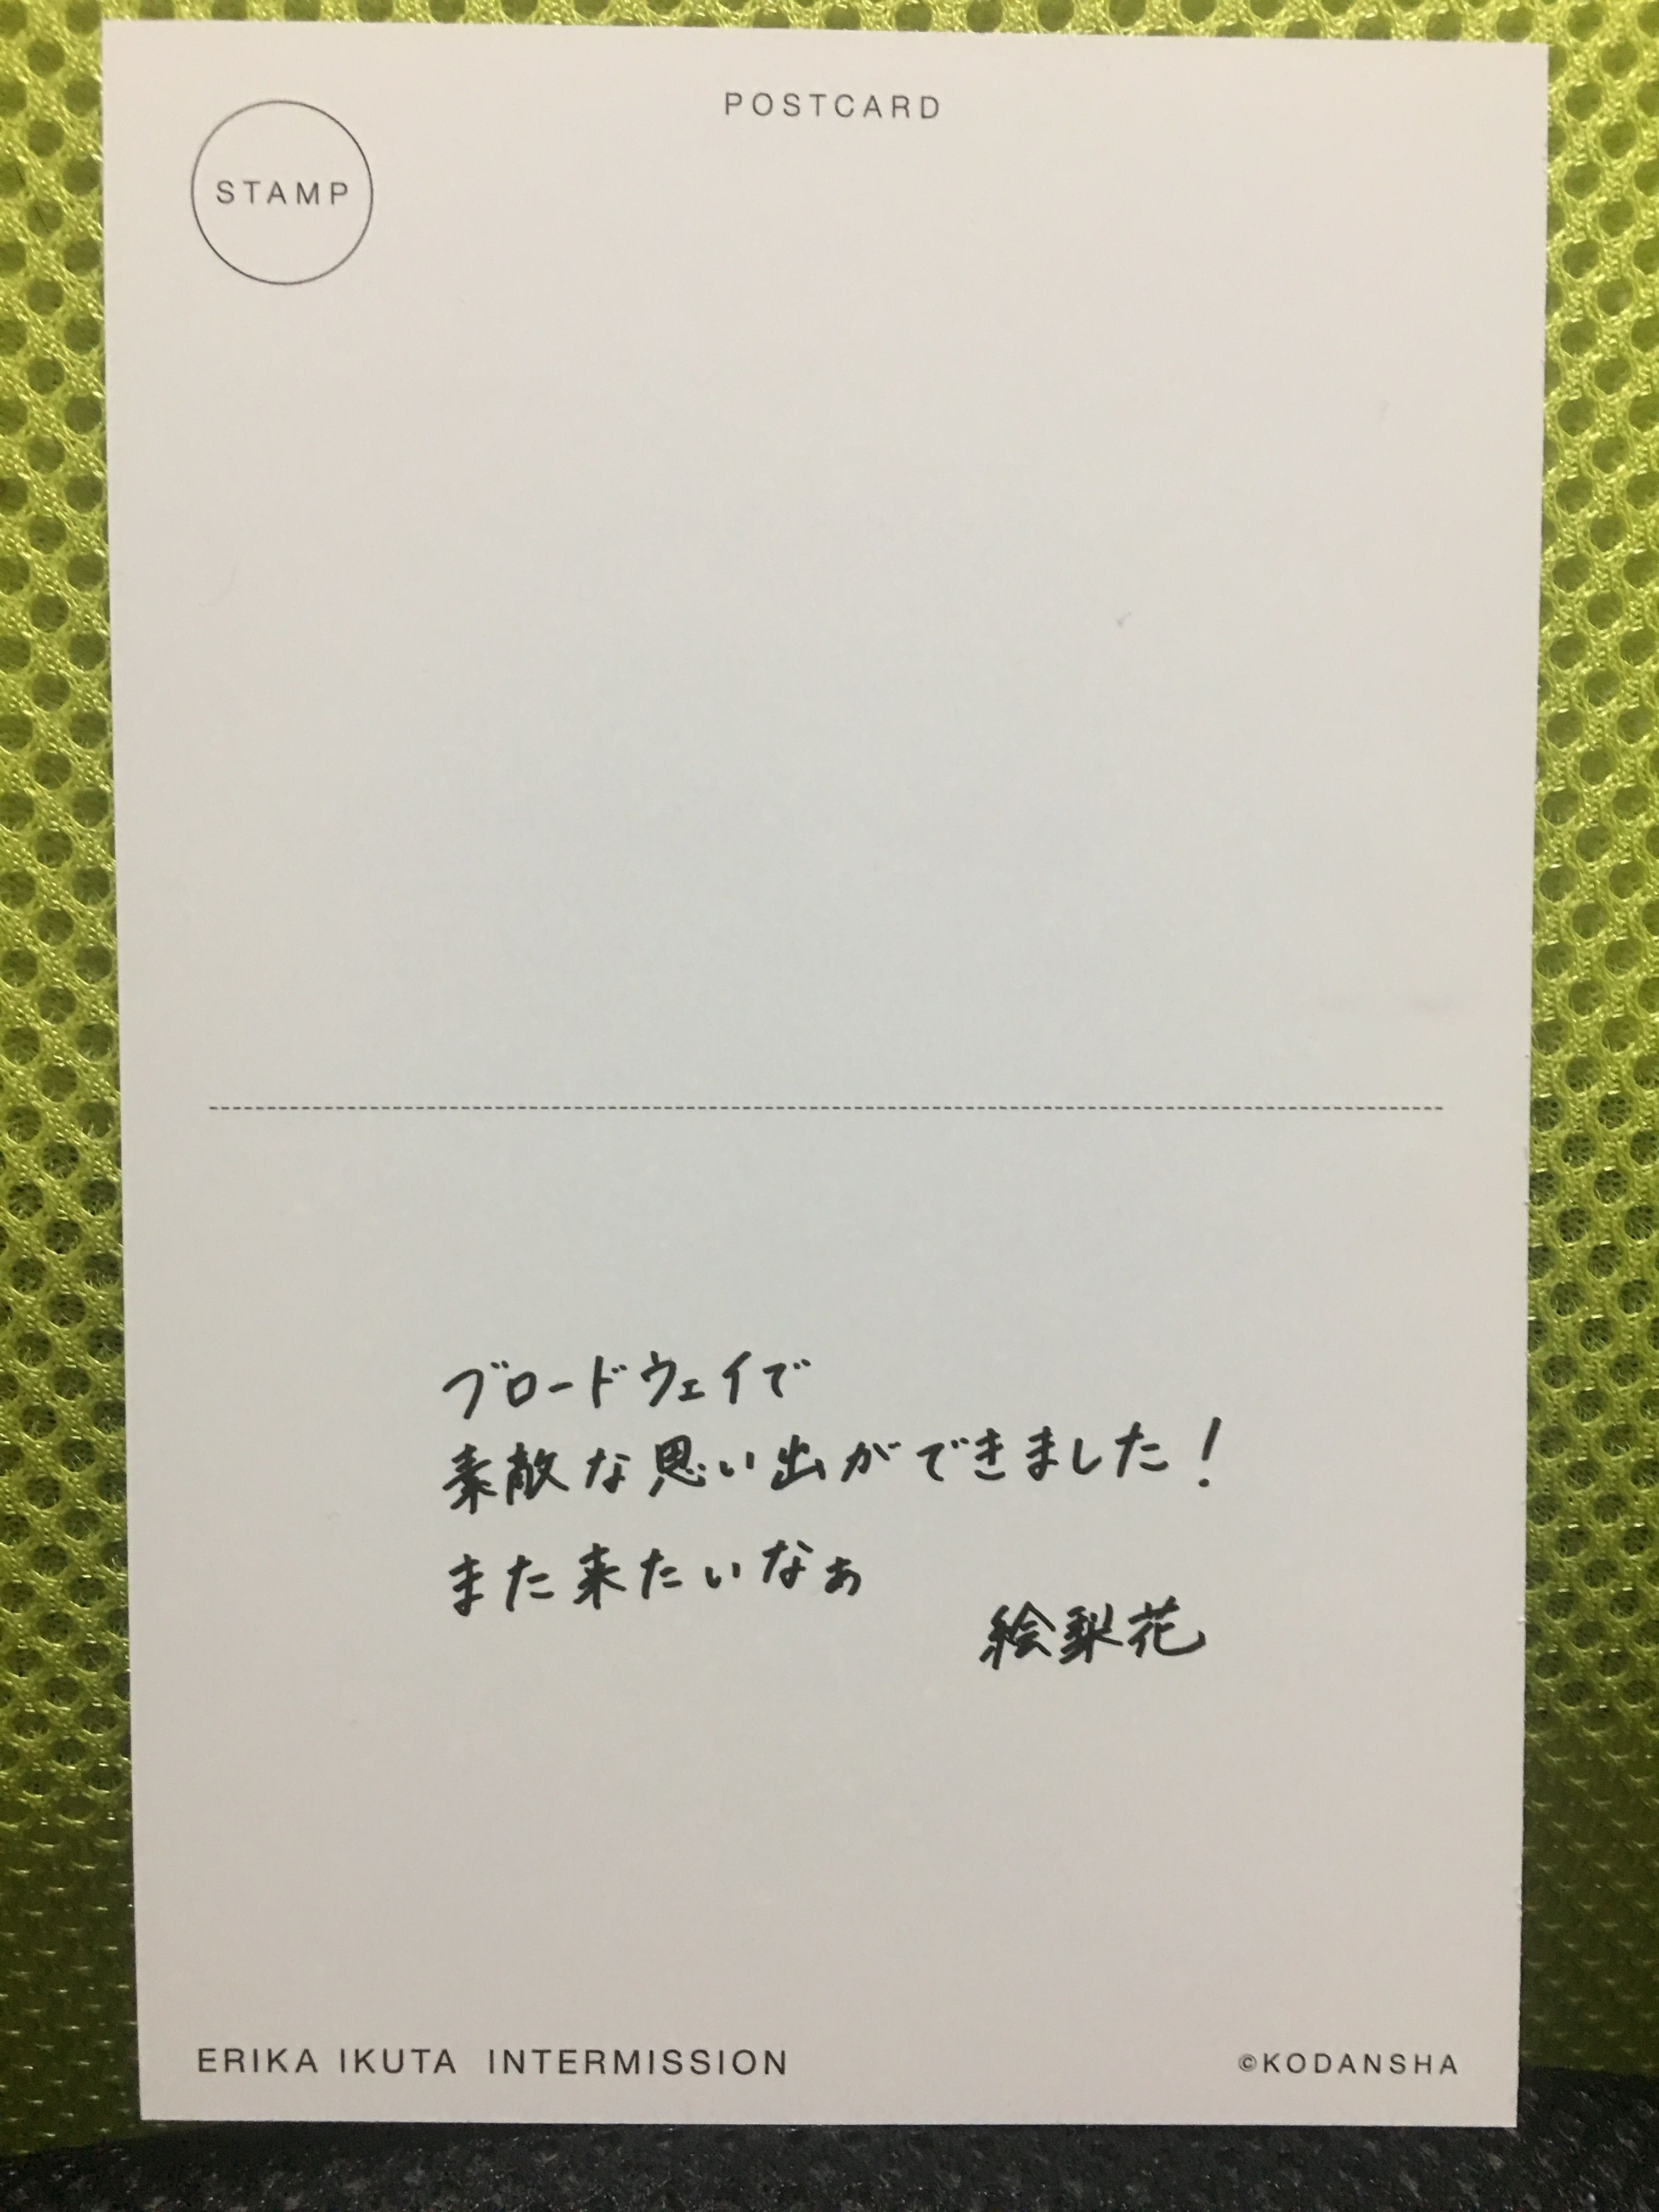 POSTCARD
STAMP
ブロードウェイで
素敵な思い出ができました!
また来たいなぁ
絵梨花
ERIKA IKUTA INTERMISSION
©KODANSHA